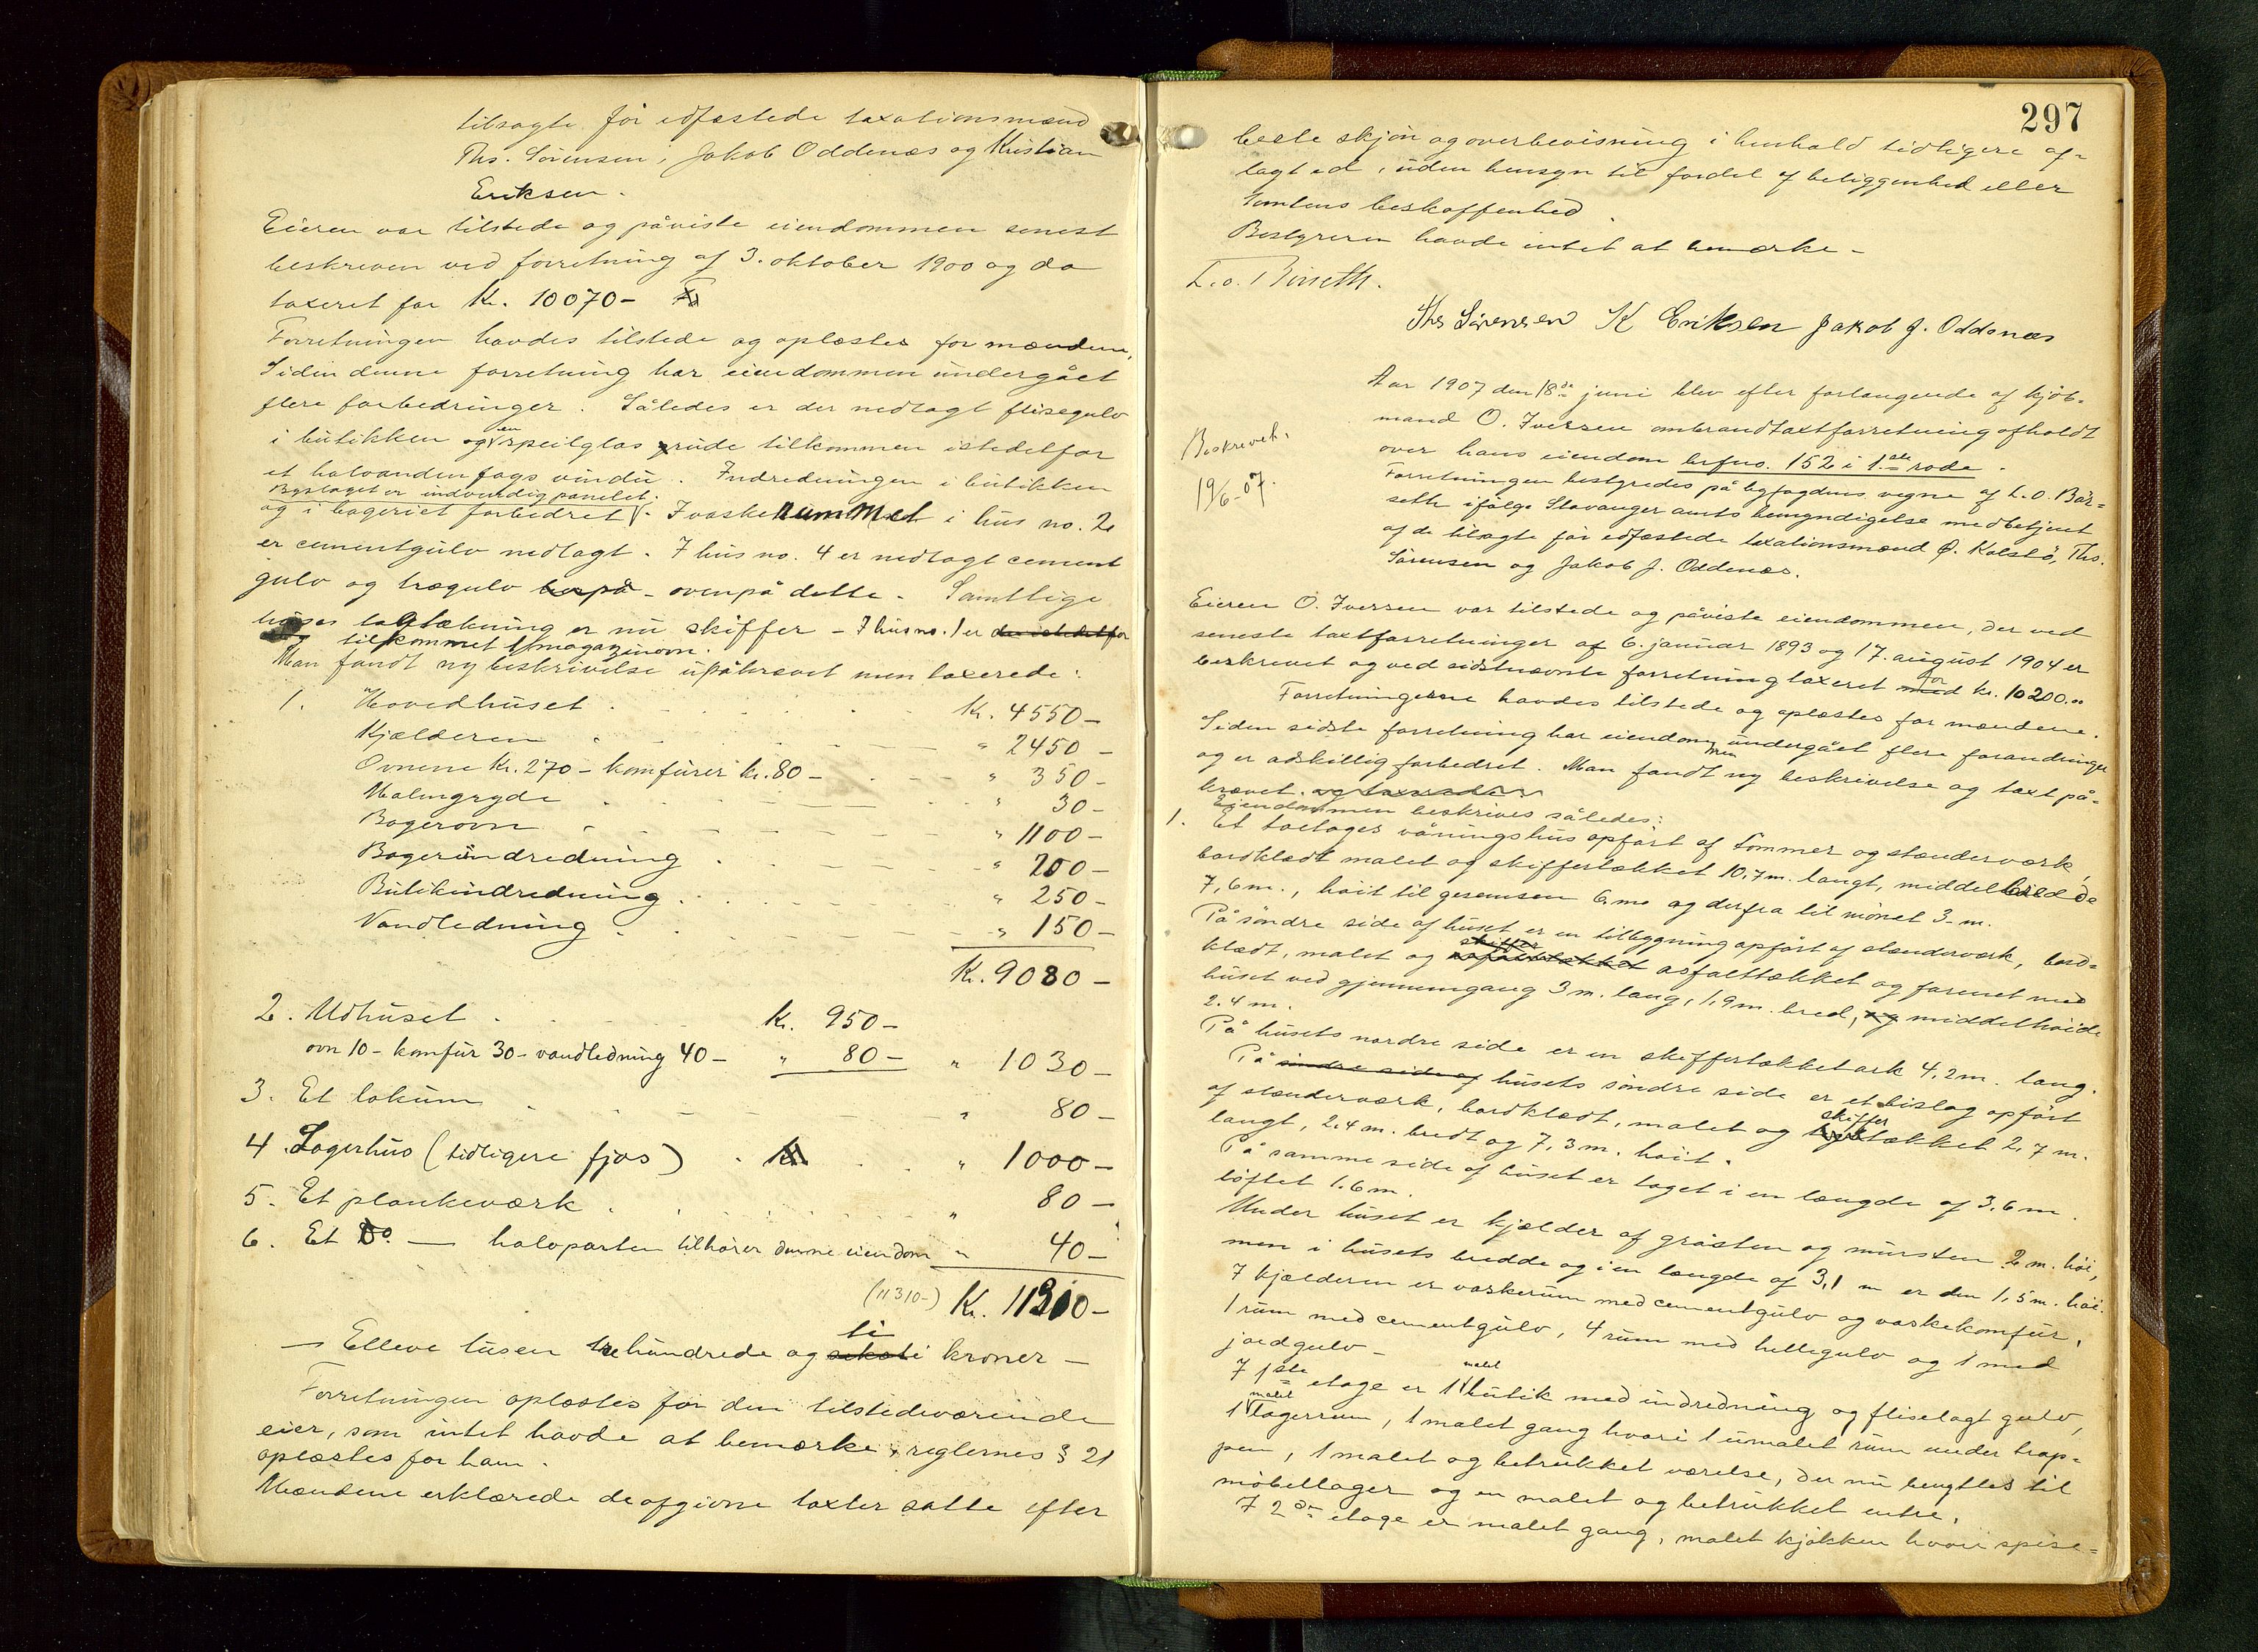 tilsagte før edfæstede taxationsmænd
Ths. Sørensen, Jakob Oddenæs og Kristian
Eriksen.
Eieren var tilstede og påviste eiendommen senest
beskreven ved forretning af 3. oktober 1900 og da
taxeret for Kr. 10070-
Forretningen havdes tilstede og oplæstes for mændene.
Siden denne forretning har eiendommen undergået
flere forbedringer. Således er der nedlagt flisegulv
i butikken og en speilglas rude tilkommen istedetfor
et halvanden fags vindu. Indredningen i butikken
Byslaget er indvendig panelet.
og i bageriet forbedret. I vaskerummet i hus no. 2
er cementgulv nedlagt. I hus no. 4 er nedlagt cement
gulv og trægulv herpå - ovenpå dette. Samtlige
huses tagtækning er nu skiffer - I hus no. 1 er der istedetfor
og tilkommet 1 magazinovn.
Man fandt ny beskrivelse upåkrævet men taxerede:
1. Hovedhuset Kr. 4550-
Kjælderen " 2450-
Ovnene Kr. 270- komfurer kr. 80- " 350-
Malmgryde " 30-
Bagerovn " 1100-
Bagerindredning " 200-
Butikindredning " 250-
Vandledning " 150-
Kr. 9080-
2. Udhuset Kr. 950-
ovn 10- komfur 30- vandledning 40- " 80- " 1030-
3. Et lokum " 80-
4. Lagerhus (tidligere fjøs) " 1000-
5. Et plankeværk " 80-
6. Et Do. — halvparten tilhører denne eiendom " 40-
(11310-) Kr. 11310-
ti
— Elleve tusen tre hundrede og kroner —
Forretningen oplæstes for den tilstedeværende
eier, som intet havde at bemærke, reglernes § 21
oplæstes for ham.
Mændene erklærede de afgivne taxter satte efter
297
beste skjøn og overbevisning i henhold tidligere af-
lagt ed, uden hensyn til fordel af beliggenhed eller
tomtens beskaffenhed.
Bestyreren havde intet at bemærke -
L. O. Børseth.
Ths Sørensen K Eriksen Jakob J. Oddenæs
Aar 1907 den 18de juni blev efter forlangende af kjøb-
mand O. Iversen ombrandtaxtforretning afholdt
over hans eiendom brfno. 152 i 1ste rode.
Beskrevet.
19/6-07.
Forretningen bestyredes på byfogdens vegne af L. O. Bør-
seth ifølge Stavanger amts bemyndigelse medbetjent
af de tilsagte før edfæstede taxationsmænd O. Kolstø, Ths.
Sørensen og Jakob J. Oddenæs.
Eieren O. Iversen var tilstede og påviste eiendommen, der ved
seneste taxtforretninger af 6. januar 1893 og 17. august 1904 er
beskrevet og ved sidstnævnte forretning taxeret med for kr. 10200.00
Forretningerne havdes tilstede og oplæstes for mændene.
Siden sidste forretning har eiendommen undergået flere forandringer
og er adskillig forbedret. Man fandt ny beskrivelse og taxt på-
krævet. og taxerede:
Eiendommen beskrives således:
1. Et toetages våningshus opført af tømmer og stænderværk,
bordklædt malet og skiffertækket 10,7 m. langt, middelbredde
7,6 m., høit til gesemsen 6. m. og derfra til mønet 3- m.
På søndre side af huset er en tilbygning opført af stænderværk, bord-
klædt, malet og asfalttækket og forenet med
huset ved gjennemgang 3 m. lang, 1,9 m. bred, og middelhøide
2.4 m.
På husets nordre side er en skiffertækket ark 4,2 m. lang.
På søndre side af husets søndre side er et bislag opført
af stænderværk, bordklædt, malet og skiffertækket 2,7 m.
langt, 2.4 m. bredt og 7,3 m. høit.
På samme side af huset er taget i en længde af 3,6 m.
løftet 1.6 m.
Under huset er kjælder af gråsten og mursten 2 m. høi,
men i husets bredde og i en længde af 3,1 m er den 1,5 m. høi.
I kjælderen er vaskerum med cementgulv og vaskekomfur,
1 rum med cementgulv, 4 rum med hellegulv og 1 med
jordgulv -
I 1ste etage er 1 malet butik med indredning og fliselagt gulv,
1 malet lagerrum, 1 malet gang hvori 1 umalet rum under trap-
pen, 1 malet og betrukket værelse, der nu benyttes til
møbellager og en malet og betrukket entre.
I 2den etage er malet gang, malet kjøkken hvori spise-